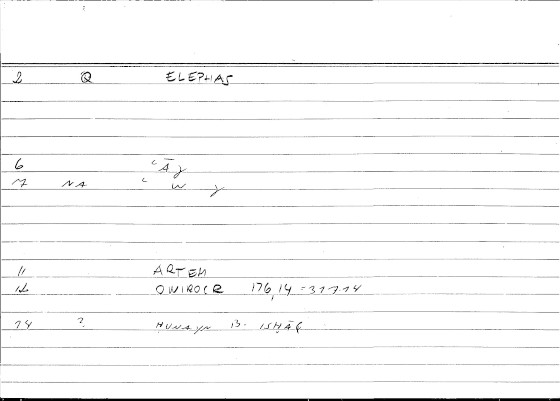 2 Q ELEPHAS
6 ʿĀǧ
7 NA ʿ W ǧ
11 ARTEM
12 ONIROCR 176,14
14 ? HUNAYN B. ISHĀQ